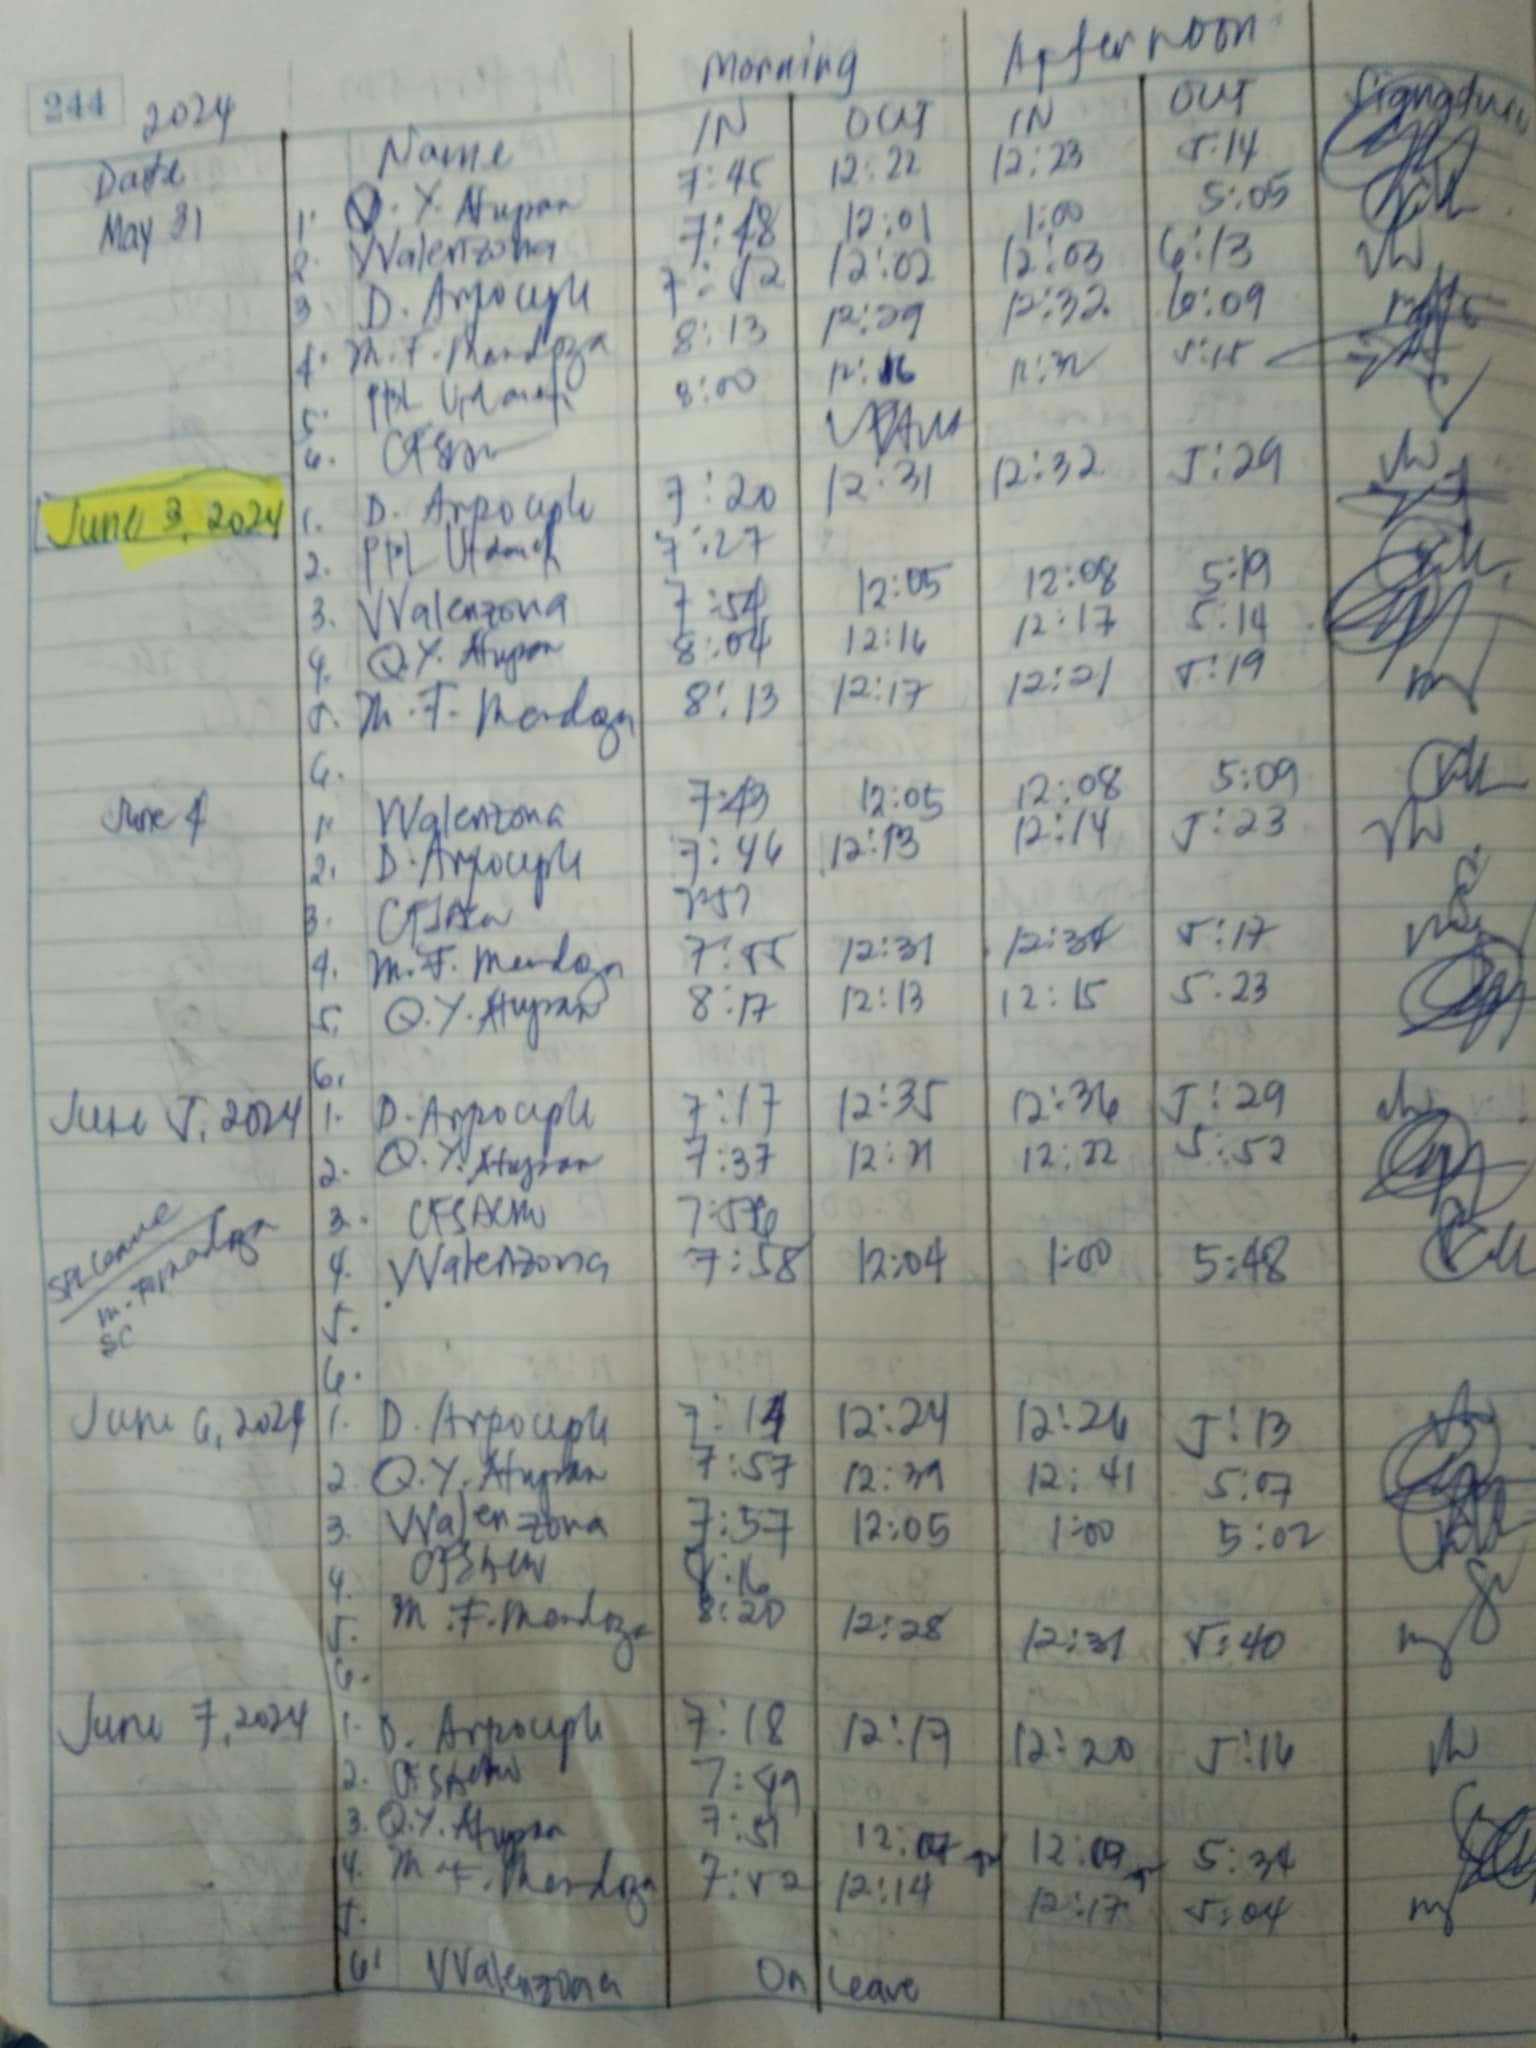 244 2024 Morning Afternoon
Date Name IN OUT IN OUT Signature
May 31 1. Q. Y. Atupan 7:45 12:22 12:23 5:14
2. VValenzona 7:48 12:01 1:00 5:05
3. D. 7:52 12:02 12:03 6:13
4. M. F. Mendoza 8:13 12:29 12:32 6:09
5. PPL 8:00 12:16 5:15
6.
June 3, 2024 1. D. 7:20 12:31 12:32 5:29
2. PPL 7:27
3. VValenzona 7:54 12:05 12:08 5:19
4. Q.Y. Atupan 8:04 12:16 12:17 5:14
5. M. F. Mendoza 8:13 12:17 12:21 5:19
6.
June 4 1. VValenzona 7:43 12:05 12:08 5:09
2. D. 7:46 12:13 12:14 5:23
3. 7:57
4. M. F. Mendoza 7:55 12:31 5:17
5. Q.Y. Atupan 8:17 12:13 12:15 5:23
6.
June 5, 2024 1. D. 7:17 12:35 12:36 5:29
2. Q.Y. Atupan 7:37 12:21 12:22 5:52
3.
4. VValenzona 7:58 12:04 1:00 5:48
SPL Leave
M. F. Mendoza
SC
5.
6.
June 6, 2024 1. D. 7:14 12:24 12:26 5:13
2. Q.Y. Atupan 7:57 12:39 12:41 5:07
3. VValenzona 7:57 12:05 1:00 5:02
4. 8:16
5. M. F. Mendoza 8:20 12:28 12:31 5:40
6.
June 7, 2024 1. D. 7:18 12:17 12:20 5:16
2. 7:49
3. Q.Y. Atupan 7:51 12:07 12:09 5:34
4. M. F. Mendoza 7:52 12:14 12:17 5:04
5.
6. VValenzona On Leave